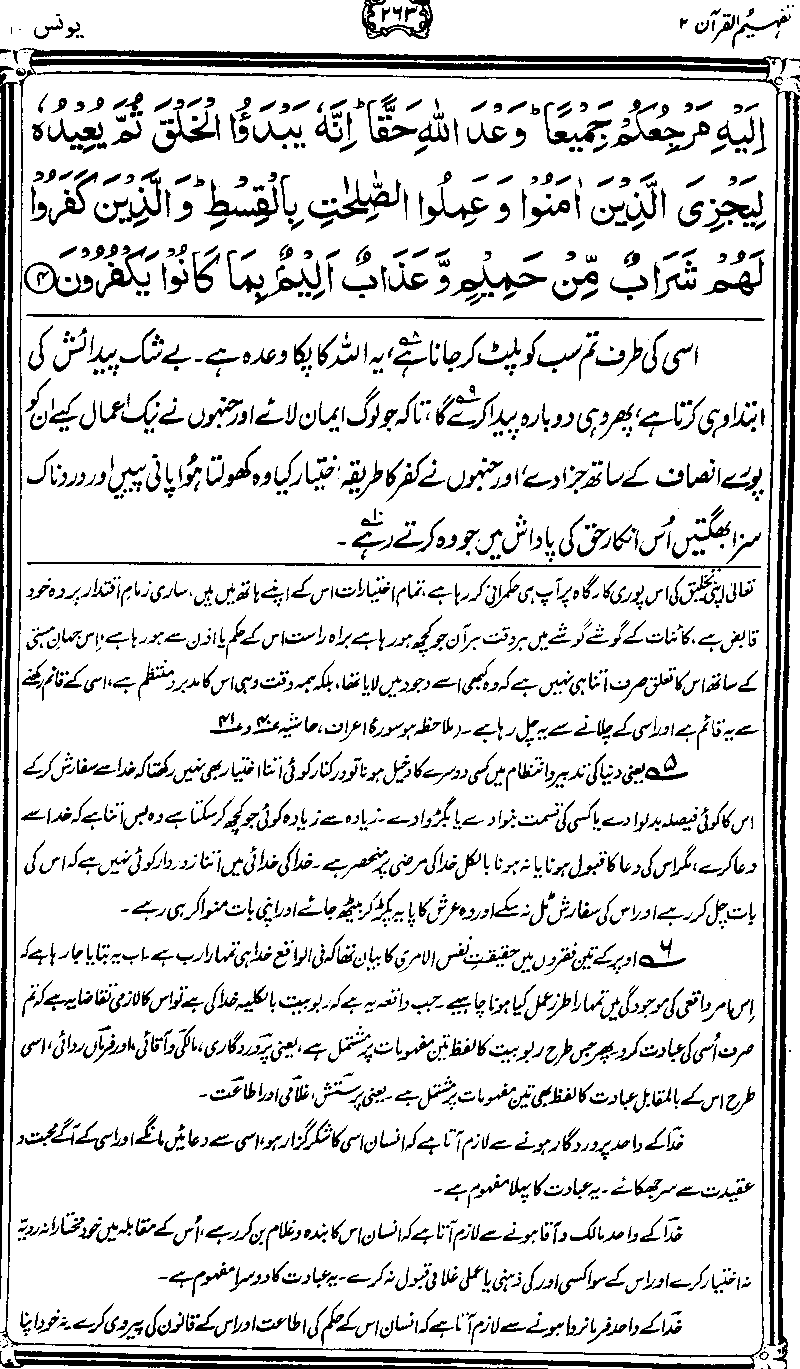 تفہیم القرآن ۲
۲۶۳
یونس ۱۰
اِلَيْهِ مَرْجِعُكُمْ جَمِيْعًا ؕ وَعْدَ اللّٰهِ حَقًّا ؕ اِنَّهٗ يَبْدَؤُا الْخَلْقَ ثُمَّ يُعِيْدُهٗ
لِيَجْزِىَ الَّذِيْنَ اٰمَنُوْا وَعَمِلُوا الصّٰلِحٰتِ بِالْقِسْطِ ؕ وَالَّذِيْنَ كَفَرُوْا
لَهُمْ شَرَابٌ مِّنْ حَمِيْمٍ وَّعَذَابٌ اَلِيْمٌۢ بِمَا كَانُوْا يَكْفُرُوْنَ ۴
اسی کی طرف تم سب کو پلٹ کر جانا ہے۸، یہ اللہ کا پکا وعدہ ہے۔ بے شک پیدائش کی
ابتدا وہی کرتا ہے، پھر وہی دوبارہ پیدا کرے گا۹، تاکہ جو لوگ ایمان لائے اور جنہوں نے نیک اعمال کیے اُن کو
پورے انصاف کے ساتھ جزا دے، اور جنہوں نے کفر کا طریقہ اختیار کیا وہ کھولتا ہُوا پانی پییں اور دردناک
سزا بھگتیں اُس انکارِ حق کی پاداش میں جو وہ کرتے رہے۱۰۔
تعالیٰ اپنی تخلیق کی اس پوری کارگاہ پر آپ ہی حکمرانی کر رہا ہے، تمام اختیارات اس کے اپنے ہاتھ میں ہیں، ساری زمامِ اقتدار پر وہ خود
قابض ہے، کائنات کے گوشے گوشے میں ہر وقت ہر آن جو کچھ ہو رہا ہے براہ راست اس کے حکم یا اذن سے ہو رہا ہے، اِس جہانِ ہستی
کے ساتھ اس کا تعلق صرف اتنا ہی نہیں ہے کہ وہ کبھی اسے وجود میں لایا تھا، بلکہ ہمہ وقت وہی اس کا مدبر و منتظم ہے، اسی کے قائم رکھنے
سے یہ قائم ہے اور اسی کے چلانے سے یہ چل رہا ہے۔ (ملاحظہ ہو سورۂ اعراف، حاشیہ ۴۰ و ۴۱
۵ یعنی دنیا کی تدبیر و انتظام میں کسی دوسرے کا دخیل ہونا تو درکنار کوئی اتنا اختیار بھی نہیں رکھتا کہ خدا سے سفارش کر کے
اس کا کوئی فیصلہ بدلوا دے یا کسی کی قسمت بنوا دے یا بگڑوا دے۔ زیادہ سے زیادہ کوئی جو کچھ کر سکتا ہے وہ بس اتنا ہے کہ خدا سے
دعا کرے، مگر اس کی دعا کا قبول ہونا یا نہ ہونا بالکل خدا کی مرضی پر منحصر ہے۔ خدا کی خدائی میں اتنا زور دار کوئی نہیں ہے کہ اس کی
بات چل کر رہے اور اس کی سفارش ٹل نہ سکے اور وہ عرش کا پایہ پکڑ کر بیٹھ جائے اور اپنی بات منوا کر ہی رہے۔
۶ اوپر کے تین فقروں میں حقیقتِ نفس الامری کا بیان تھا کہ فی الواقع خدا ہی تمہارا رب ہے۔ اب یہ بتایا جا رہا ہے کہ
اِس امرِ واقعی کی موجودگی میں تمہارا طرزِ عمل کیا ہونا چاہیے۔ جب واقعہ یہ ہے کہ ربوبیت بالکلیہ خدا کی ہے تو اس کا لازمی تقاضا یہ ہے کہ تم
صرف اُسی کی عبادت کرو۔ پھر جس طرح ربوبیت کا لفظ تین مفہومات پر مشتمل ہے، یعنی پروردگاری، مالکی و آقائی، اور فرماں روائی، اسی
طرح اس کے بالمقابل عبادت کا لفظ بھی تین مفہومات پر مشتمل ہے۔ یعنی پرستش، غلامی اور اطاعت۔
خدا کے واحد پروردگار ہونے سے لازم آتا ہے کہ انسان اسی کا شکر گزار ہو، اسی سے دعائیں مانگے اور اسی کے آگے محبت و
عقیدت سے سر جھکائے۔ یہ عبادت کا پہلا مفہوم ہے۔
خدا کے واحد مالک و آقا ہونے سے لازم آتا ہے کہ انسان اس کا بندہ و غلام بن کر رہے، اُس کے مقابلہ میں خود مختارانہ رویہ
نہ اختیار کرے اور اس کے سوا کسی اور کی ذہنی یا عملی غلامی قبول نہ کرے۔ یہ عبادت کا دوسرا مفہوم ہے۔
خدا کے واحد فرمانروا ہونے سے لازم آتا ہے کہ انسان اس کے حکم کی اطاعت اور اس کے قانون کی پیروی کرے نہ خود اپنا